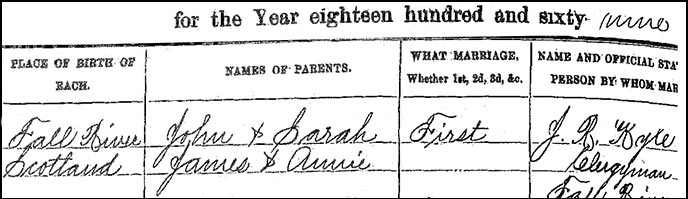 for the Year eighteen hundred and sixty-nine
PLACE OF BIRTH OF EACH.
NAMES OF PARENTS.
WHAT MARRIAGE, Whether 1st, 2d, 3d, &c.
NAME AND OFFICIAL STA PERSON BY WHOM MAR
Fall River John & Sarah First J. R. Kyle
Scotland James & Annie Clergyman
Fall River